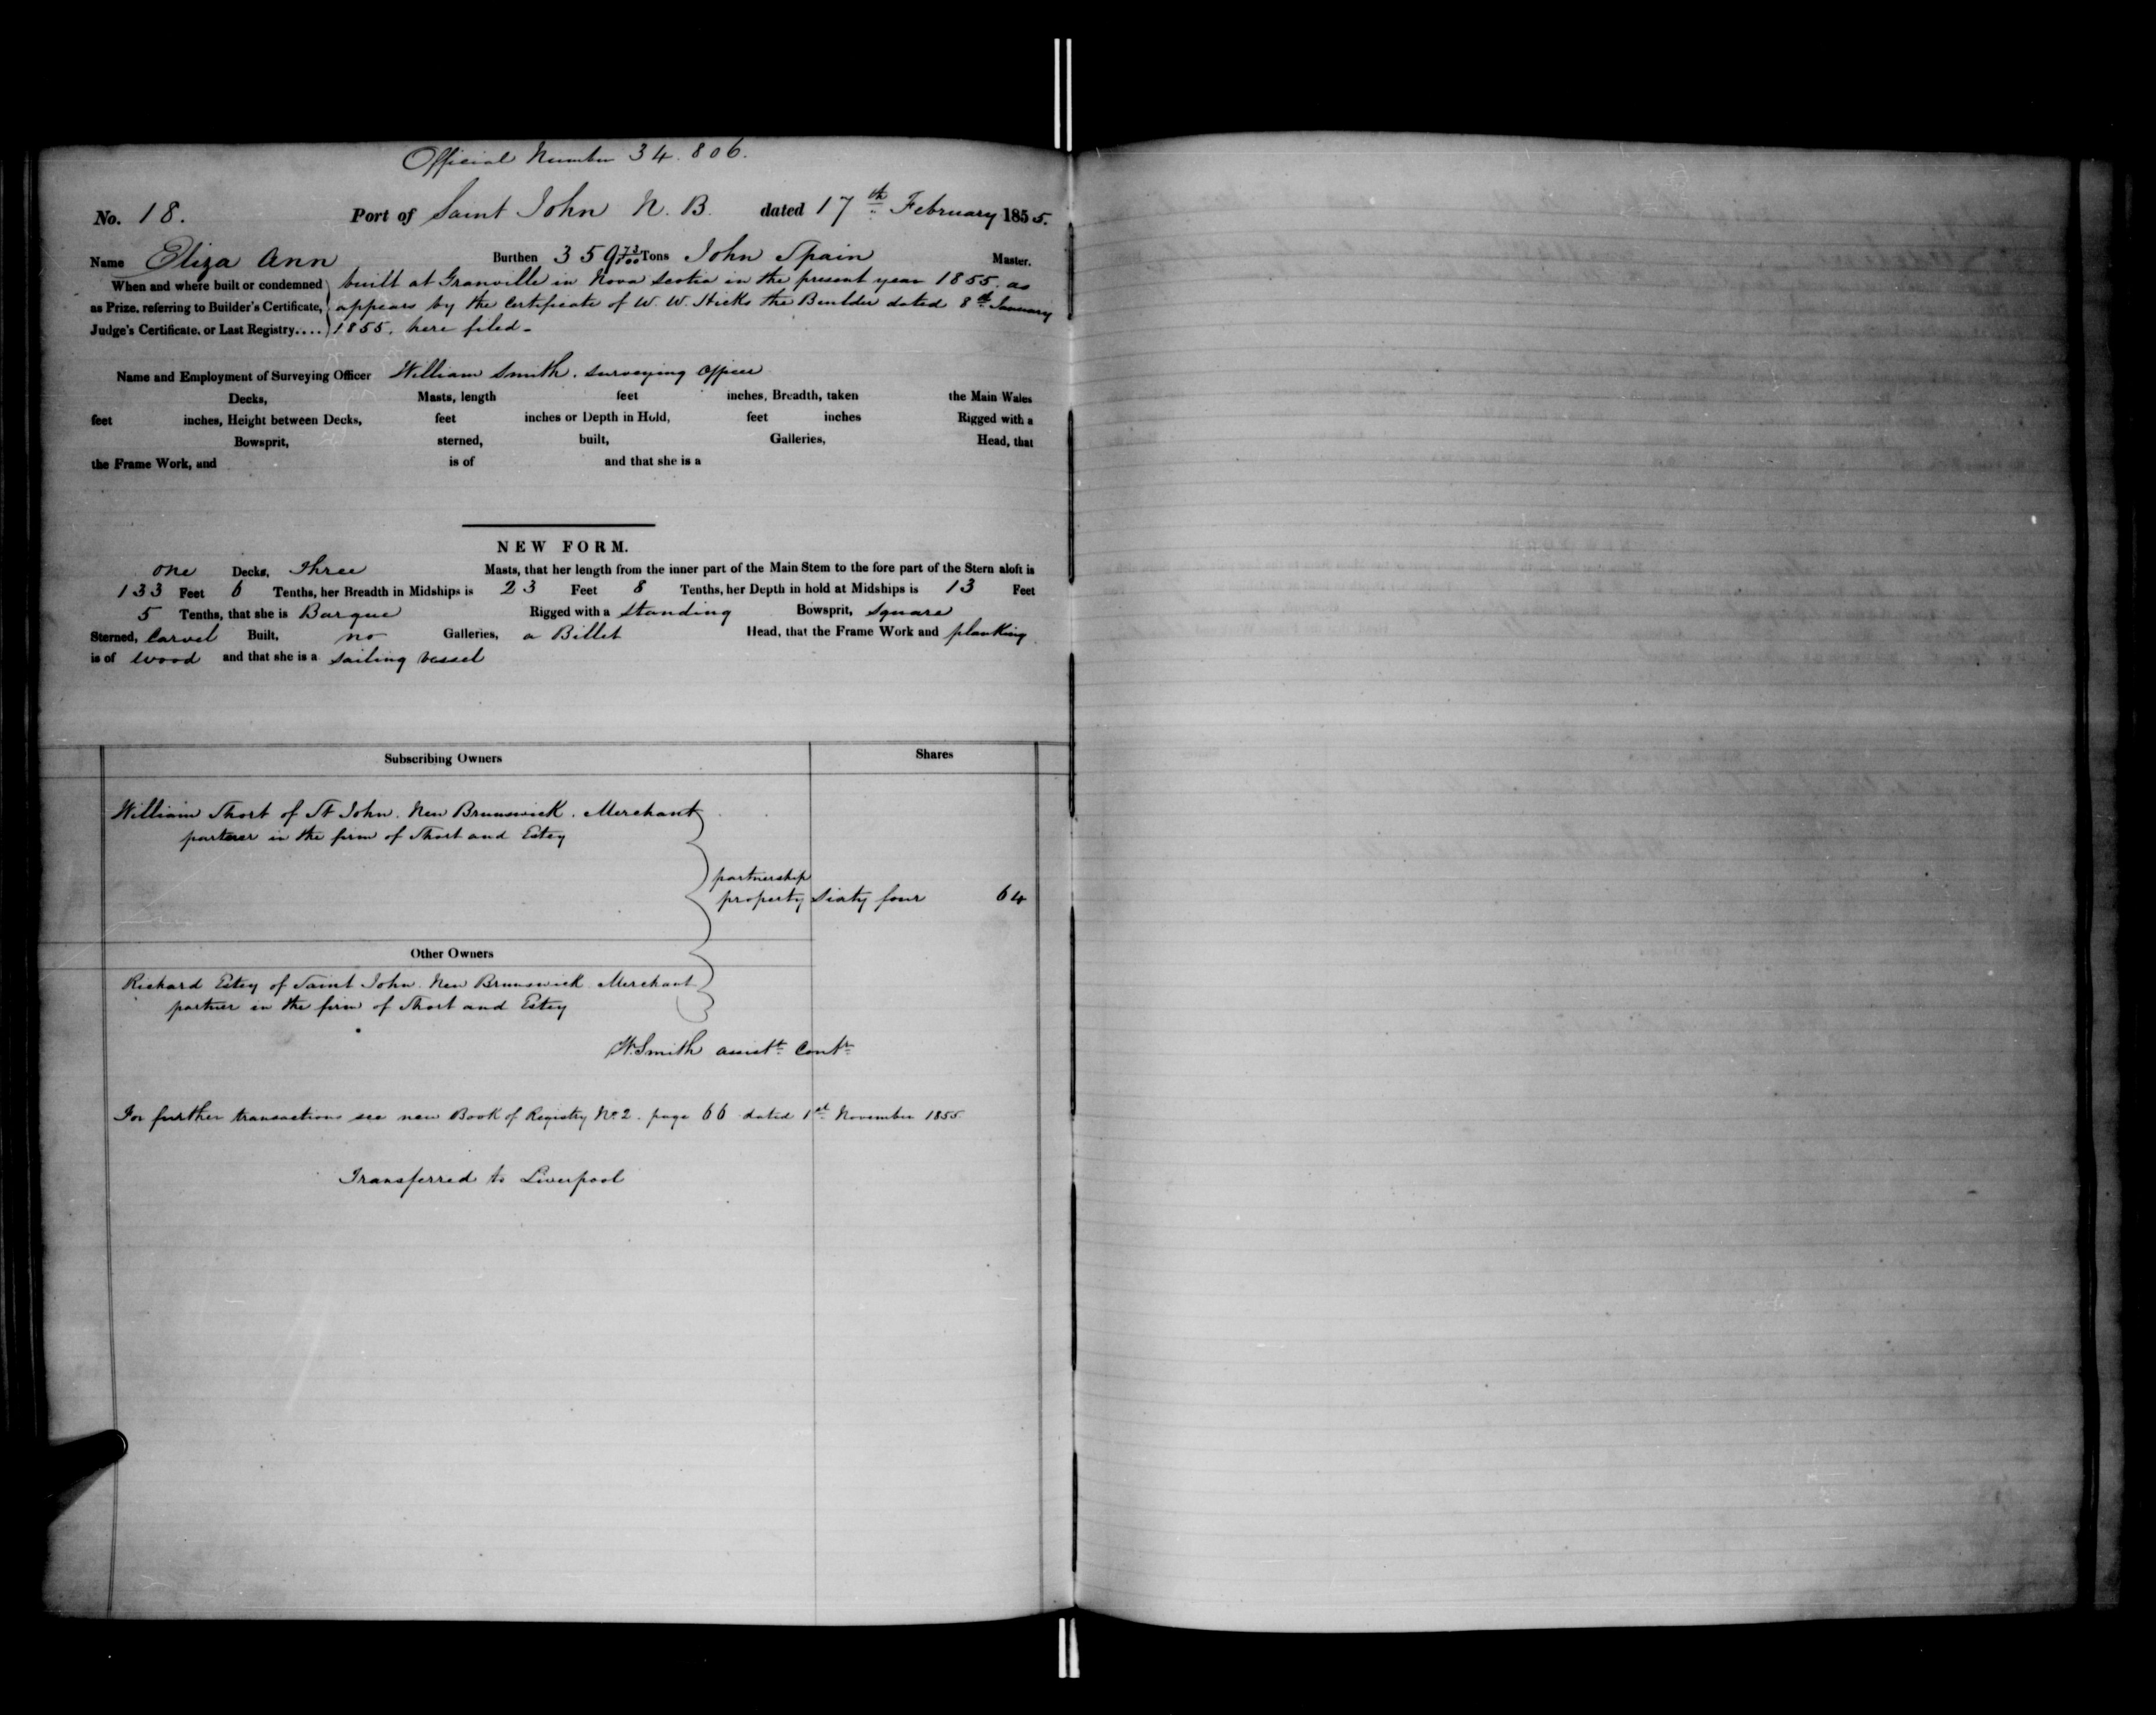 Official Number 34.806.
No. 18. Port of Saint John N. B. dated 17th February 1855.
Name Eliza Ann Burthen 359 73/100 Tons John Spain Master.
When and where built or condemned built at Granville in Nova Scotia in the present year 1855. as
as Prize, referring to Builder's Certificate, appears by the Certificate of W. W. Hicks the Builder dated 8th January
Judge's Certificate, or Last Registry.... 1855. here filed -
Name and Employment of Surveying Officer William Smith. Surveying Officer
Decks, Masts, length feet inches, Breadth, taken the Main Wales
feet inches, Height between Decks, feet inches or Depth in Hold, feet inches Rigged with a
Bowsprit, sterned, built, Galleries, Head, that
the Frame Work, and is of and that she is a
NEW FORM.
One Decks, Three Masts, that her length from the inner part of the Main Stem to the fore part of the Stern aloft is
133 Feet 6 Tenths, her Breadth in Midships is 23 Feet 8 Tenths, her Depth in hold at Midships is 13 Feet
5 Tenths, that she is Barque Rigged with a Standing Bowsprit, Square
Sterned, Carvel Built, no Galleries, a Billet Head, that the Frame Work and planking
is of Wood and that she is a Sailing Vessel
Subscribing Owners Shares
William Short of St John. New Brunswick. Merchant
partner in the firm of Short and Estey
partnership
property Sixty four 64
Other Owners
Richard Estey of Saint John. New Brunswick Merchant
partner in the firm of Short and Estey
W. Smith assistt. Contr.
For further transactions see new Book of Registry No. 2. page 66 dated 1st November 1855.
Transferred to Liverpool